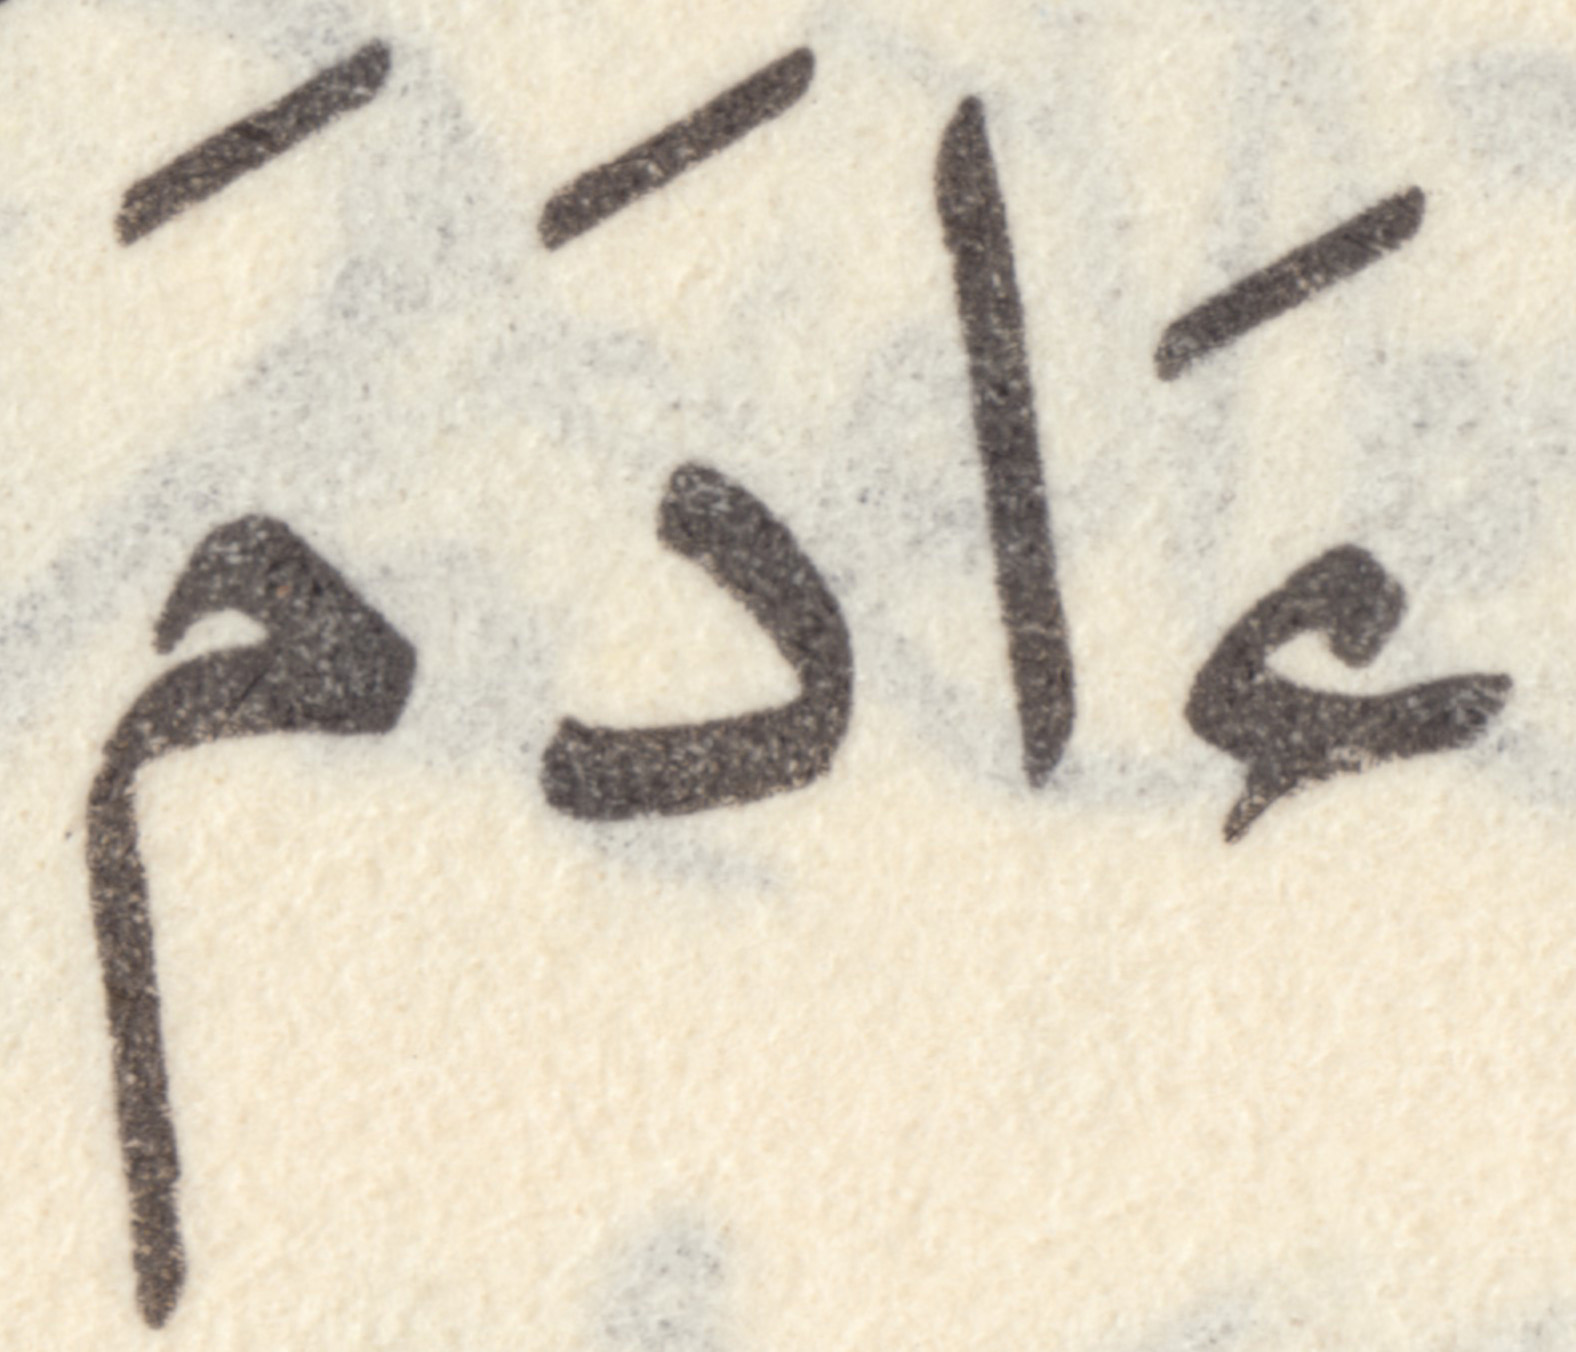 ءَادَمَ